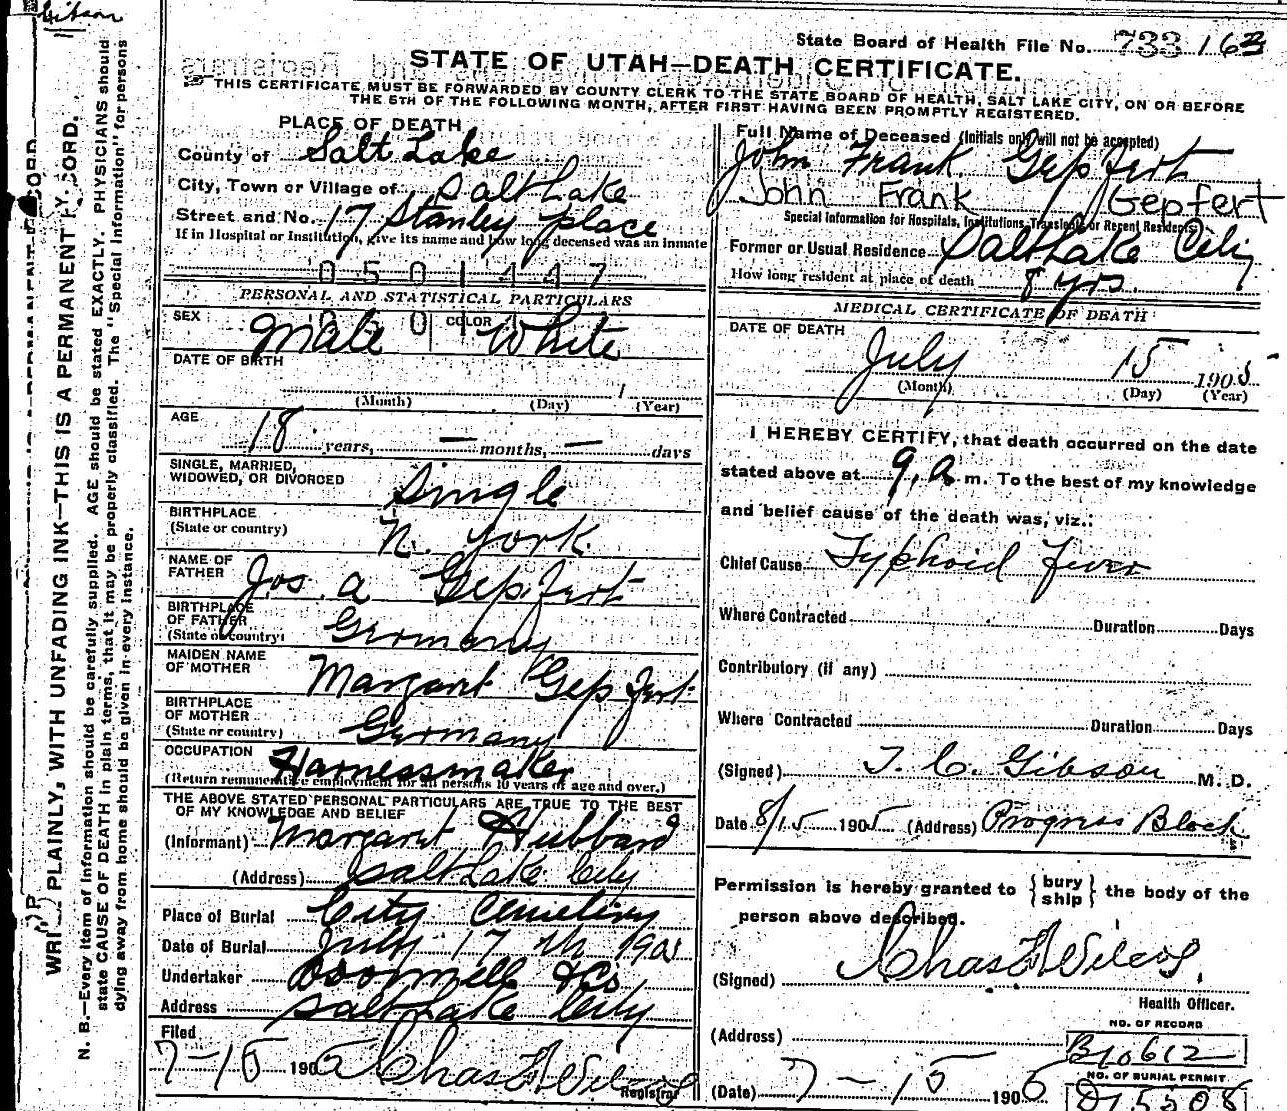 Gibson
State Board of Health File No. 733 163
STATE OF UTAH—DEATH CERTIFICATE.
THIS CERTIFICATE MUST BE FORWARDED BY COUNTY CLERK TO THE STATE BOARD OF HEALTH, SALT LAKE CITY, ON OR BEFORE
THE 5TH OF THE FOLLOWING MONTH, AFTER FIRST HAVING BEEN PROMPTLY REGISTERED.
PLACE OF DEATH
County of Salt Lake
City, Town or Village of Salt Lake
Street and No. 17 Stanley place
If in Hospital or Institution, give its name and how long deceased was an inmate
0501447
PERSONAL AND STATISTICAL PARTICULARS
SEX Male COLOR White
DATE OF BIRTH
(Month) (Day) (Year)
AGE
18 years, — months, — days
SINGLE, MARRIED,
WIDOWED, OR DIVORCED Single
BIRTHPLACE
(State or country) N. York
NAME OF
FATHER Jos. A Gepfert
BIRTHPLACE
OF FATHER
(State or country) Germany
MAIDEN NAME
OF MOTHER Margaret Gepfert
BIRTHPLACE
OF MOTHER
(State or country) Germany
OCCUPATION Harnessmaker
(Return remunerative employment for all persons 10 years of age and over.)
THE ABOVE STATED PERSONAL PARTICULARS ARE TRUE TO THE BEST
OF MY KNOWLEDGE AND BELIEF
(Informant) Margaret Hubbard
(Address) Salt Lake City
Place of Burial City Cemetery
Date of Burial July 17th 1905
Undertaker & Co
Address Salt Lake City
Filed
7-15 1905 Chas F Wilcox
Registrar
Full Name of Deceased (Initials only will not be accepted)
John Frank Gepfert
John Frank Gepfert
Special Information for Hospitals, Institutions, Transients, or Recent Residents:
Former or Usual Residence Salt Lake City
How long resident at place of death 8 yrs.
MEDICAL CERTIFICATE OF DEATH
DATE OF DEATH
July 15 1905
(Month) (Day) (Year)
I HEREBY CERTIFY, that death occurred on the date
stated above at 9, a m. To the best of my knowledge
and belief cause of the death was, viz.:
Chief Cause Typhoid Fever
Where Contracted Duration Days
Contributory (if any)
Where Contracted Duration Days
(Signed) T. C. Gibson M. D.
Date 8/15 1905 (Address) Progress Block
Permission is hereby granted to { bury ship } the body of the
person above described.
(Signed) Chas F Wilcox,
Health Officer.
(Address)
NO. OF RECORD
B10612
(Date) 7-15 1905
NO. OF BURIAL PERMIT
D15508
WRITE PLAINLY, WITH UNFADING INK—THIS IS A PERMANENT RECORD.
N. B.—Every item of information should be carefully supplied. AGE should be stated EXACTLY. PHYSICIANS should
state CAUSE OF DEATH in plain terms, that it may be properly classified. The "Special Information" for persons
dying away from home should be given in every instance.